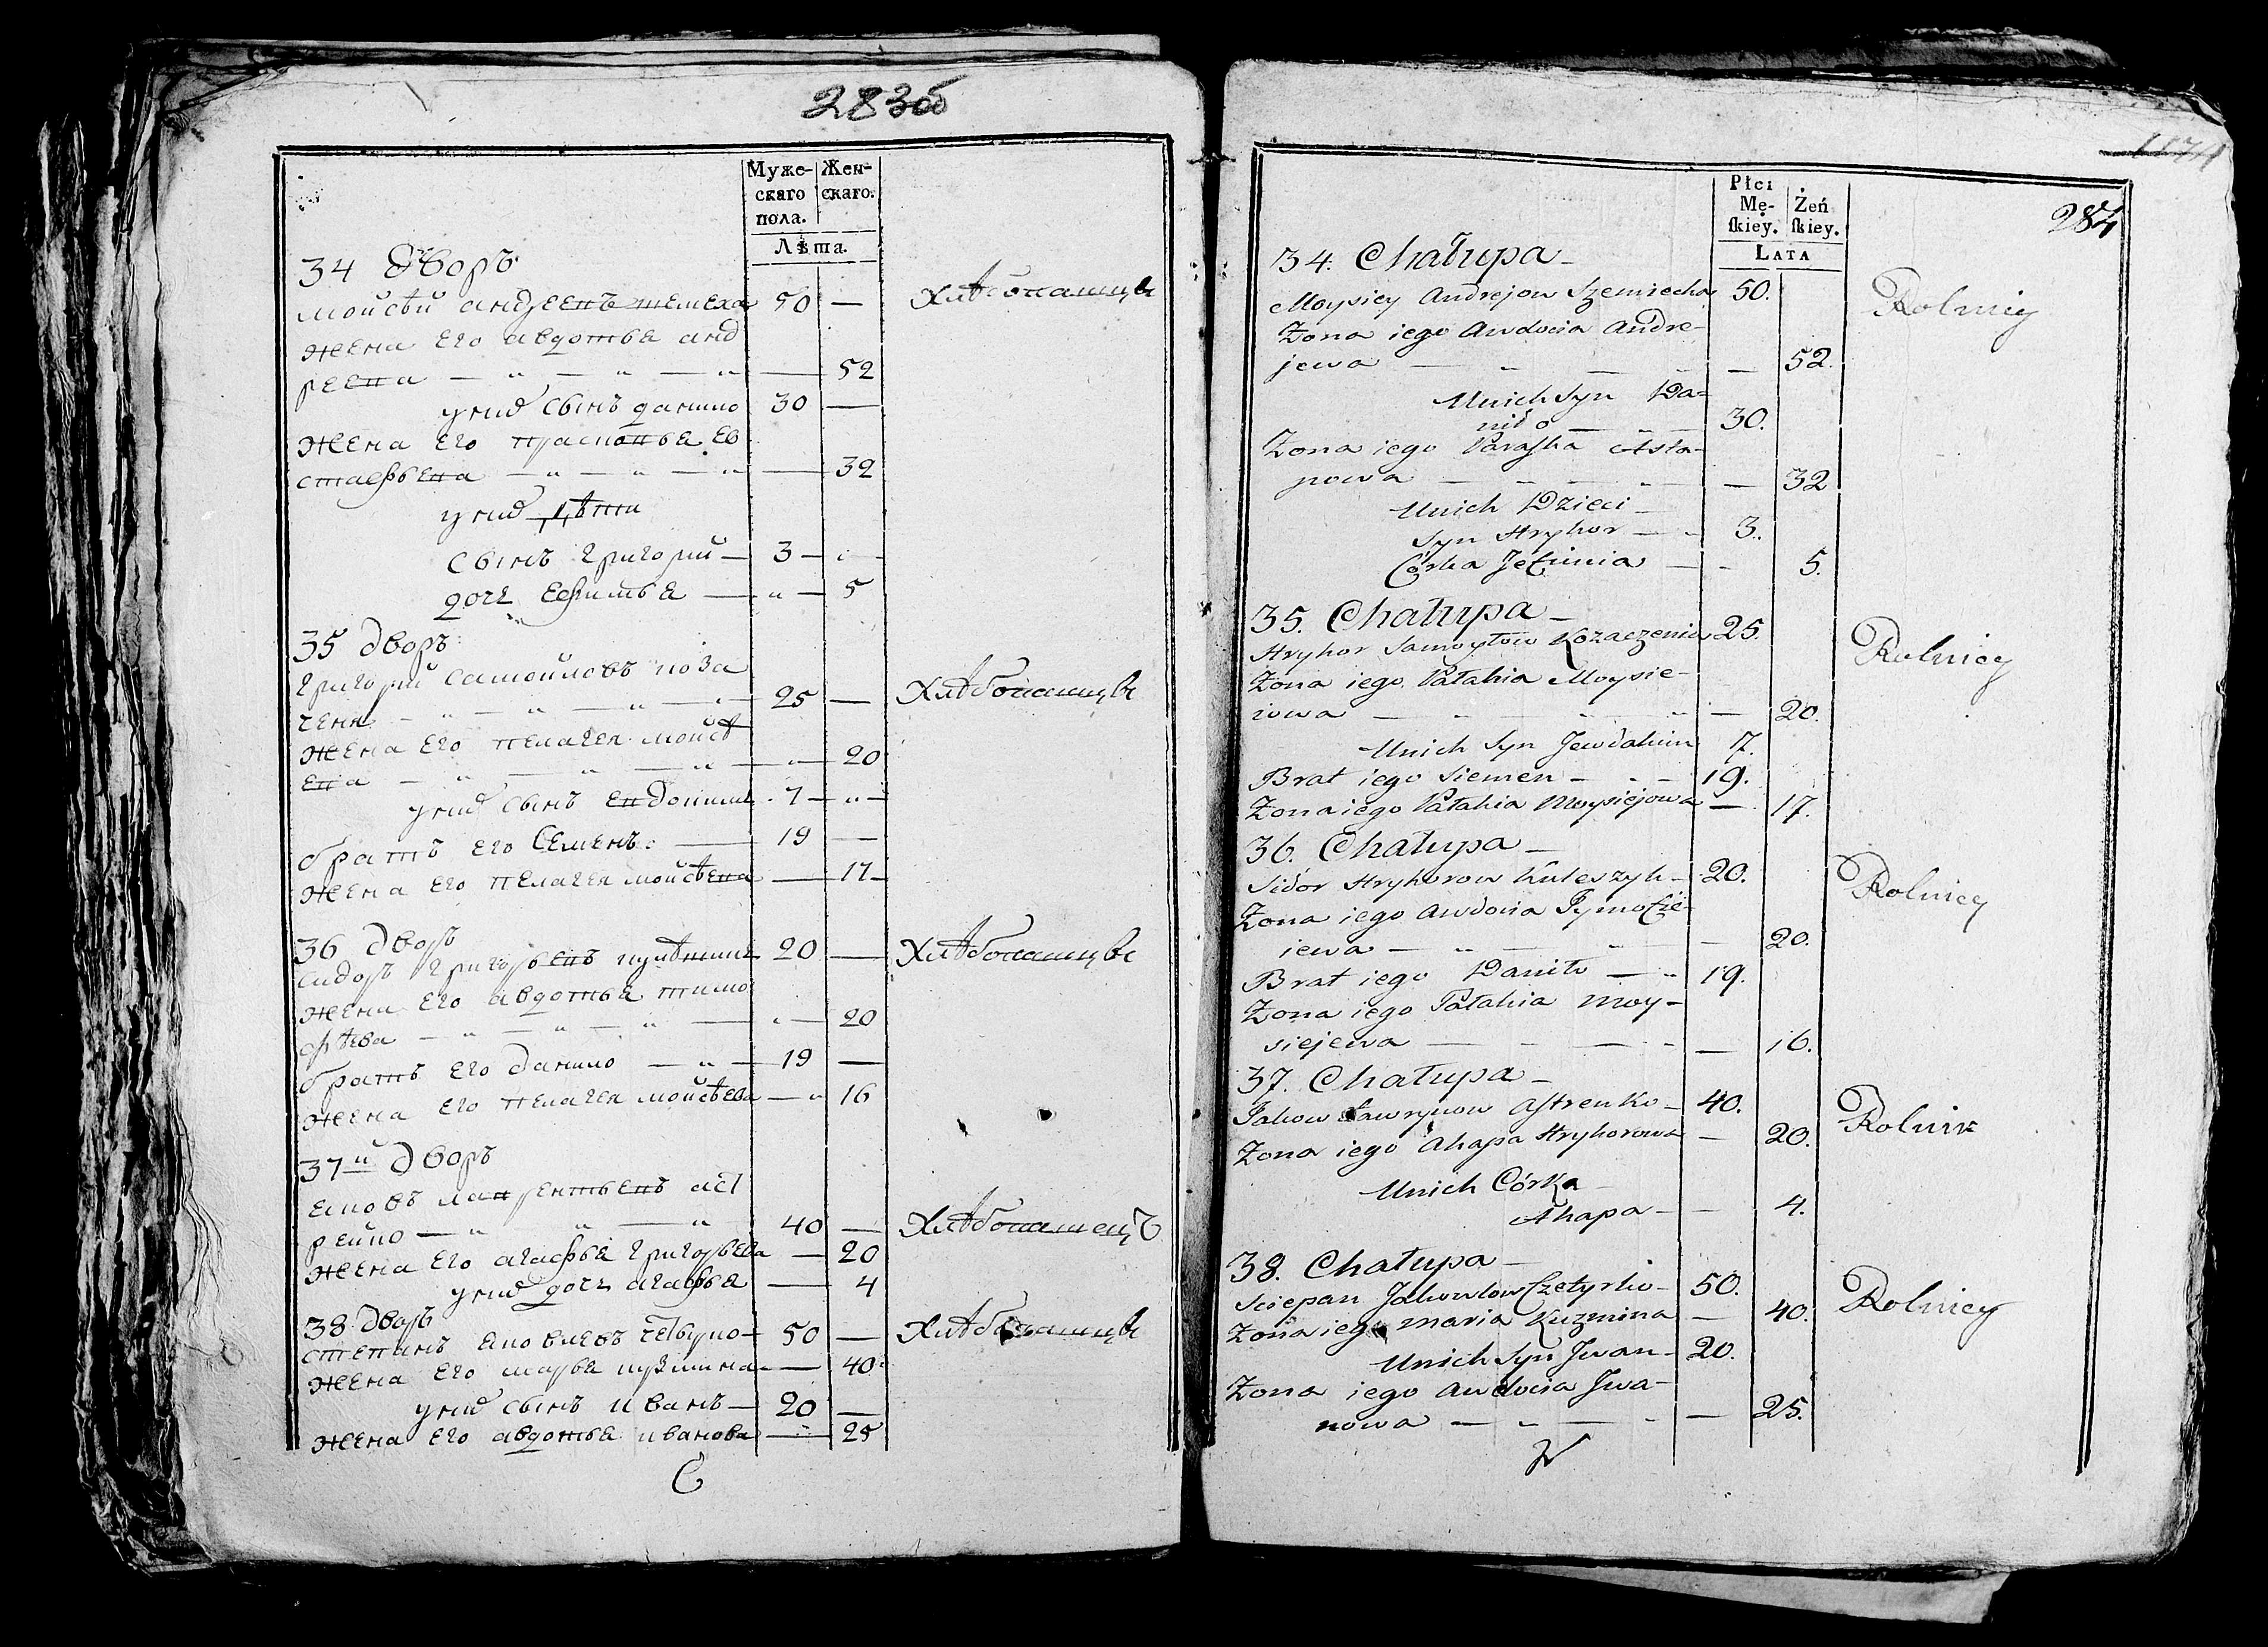 283об
Муже-
скаго
пола.
Жен-
скаго.
Лѣта.
34 дворъ
мойсѣй андреевъ шемеха 50 — хлѣбопашцы
жена его авдотья анд
реева — „ — „ — „ — 52
у них сынъ данило 30 —
жена его прасковья ев
стафьева — „ — „ — „ — 32
у них дѣти
сынъ григорий — 3 —
дочь ефимья — „ — 5
35 дворъ
григорий самойловъ коза
ченя — „ — „ — „ 25 — хлѣбопашцы
жена его пелагея мойсѣ
ева — „ — „ — „ — 20
у них сынъ евдоким 7 — „ —
братъ его Семенъ — 19 —
жена его пелагея мойсѣева — 17
36 дворъ
сидоръ григорьевъ кулѣшик 20 — хлѣбопашцы
жена его авдотья тимо
фѣева — „ — „ — „ — 20
братъ его данило — „ — 19 —
жена его пелагея мойсѣева — „ 16
37й дворъ
яковъ лаврентьевъ аст
рейко — „ „ — „ 40 — хлѣбопашецъ
жена его агафья григорьева — 20
у них дочь агафья — 4
38 дворъ
степанъ яковлевъ четырко — 50 — хлѣбопашцы
жена его марья кузмина — 40
у них сынъ иванъ — 20 —
жена его авдотья иванова — 25
С
1174
284
Płci
Mę-
ſkiey.
Żeń
ſkiey.
LATA
34. Chałupa —
Moysiey Andrejow Szemiecha 50. Rolnicy
Żona iego Awdocia Andre-
jewa — „ — — 52.
Unich Syn Da-
niło — — 30.
Żona iego Paraſka Asta-
powa — „ — „ — 32
Unich Dzieci —
Syn Hryhor — „ 3.
Córka Jefimia — - 5.
35. Chałupa —
Hryhor Samoyłow Kozaczenia 25. Rolnicy
Żona iego Pałahia Moysie-
iowa — „ „ „ — 20.
Unich Syn Jewdakim 7.
Brat iego Siemen — - — 19.
Żona iego Pałahia Moysiejowa — 17.
36. Chałupa —
Sidor Hryhorow Kuleszyk — 20. Rolnicy
Żona iego Awdocia Tymofie-
iewa — „ — „ — 20.
Brat iego Daniło — „ 19.
Żona iego Pałahia Moy-
siejewa — — — 16.
37. Chałupa —
Jakow Ławrynow Aſtreyko — 40. Rolnik
Żona iego Ahapa Hryhorowa — 20.
Unich Córka —
Ahapa — - 4.
38. Chałupa —
Sciepan Jakowlow Czetyrko — 50. Rolnicy
Żona iego Maria Kuzmina — 40.
Unich Syn Jwan — 20.
Żona iego Awdocia Jwa-
nowa — „ — „ — 25.